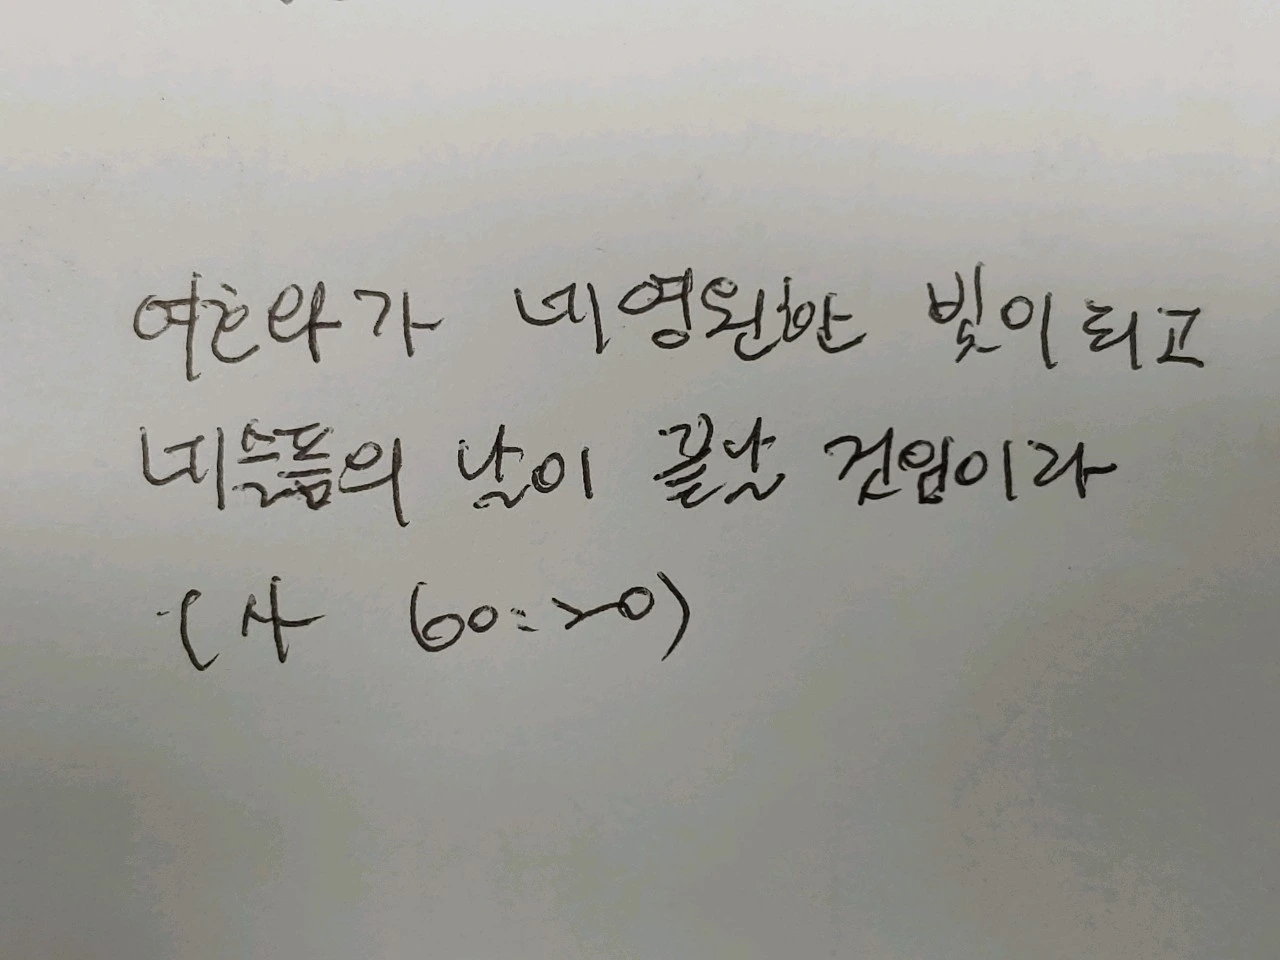 여호와가 네 영원한 빛이 되고
네 슬픔의 날이 끝날 것임이라
(사 60:20)